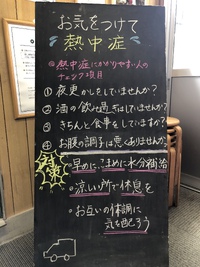 お気をつけて
熱中症
◎熱中症にかかりやすい人の
チェック項目
①夜更かしをしていませんか?
②酒の飲み過ぎはしていませんか?
③きちんと食事をしていますか?
④お腹の調子は悪くありませんか?
対策
・早めに、こまめに水分補給
・涼しい所で休息を
・お互いの体調に
気を配ろう